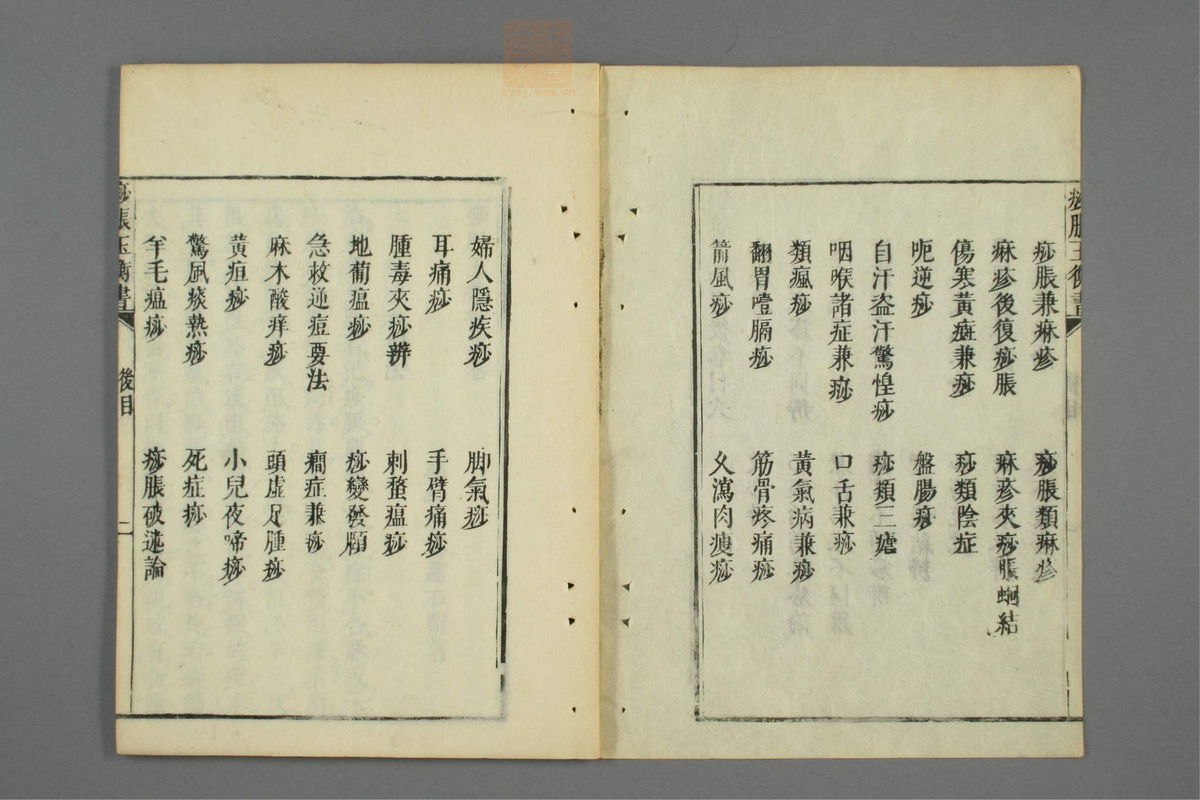 痧脹玉衡書
痧脹兼麻疹
痧脹類麻疹
麻疹後復痧脹
麻疹夾痧脹蛔結
傷寒黃疸兼痧
痧類陰症
呃逆痧
盤腸痧
自汗盜汗驚惶痧
痧類三瘧
咽喉諸症兼痧
口舌兼痧
類瘋痧
黃氣病兼痧
翻胃噎膈痧
筋骨疼痛痧
箭風痧
久瀉肉瘦痧
婦人隱疾痧
脚氣痧
耳痛痧
手臂痛痧
腫毒夾痧辨
刺蝥瘟痧
地葡瘟痧
痧變發頤
急救逆痘要法
癎症兼痧
麻木酸痒痧
頭虛足腫痧
黃疸痧
小兒夜啼痧
驚風痰熱痧
死症痧
羊毛瘟痧
痧脹破迷論
痧脹玉衡書
後目
二
zysj.com.cn